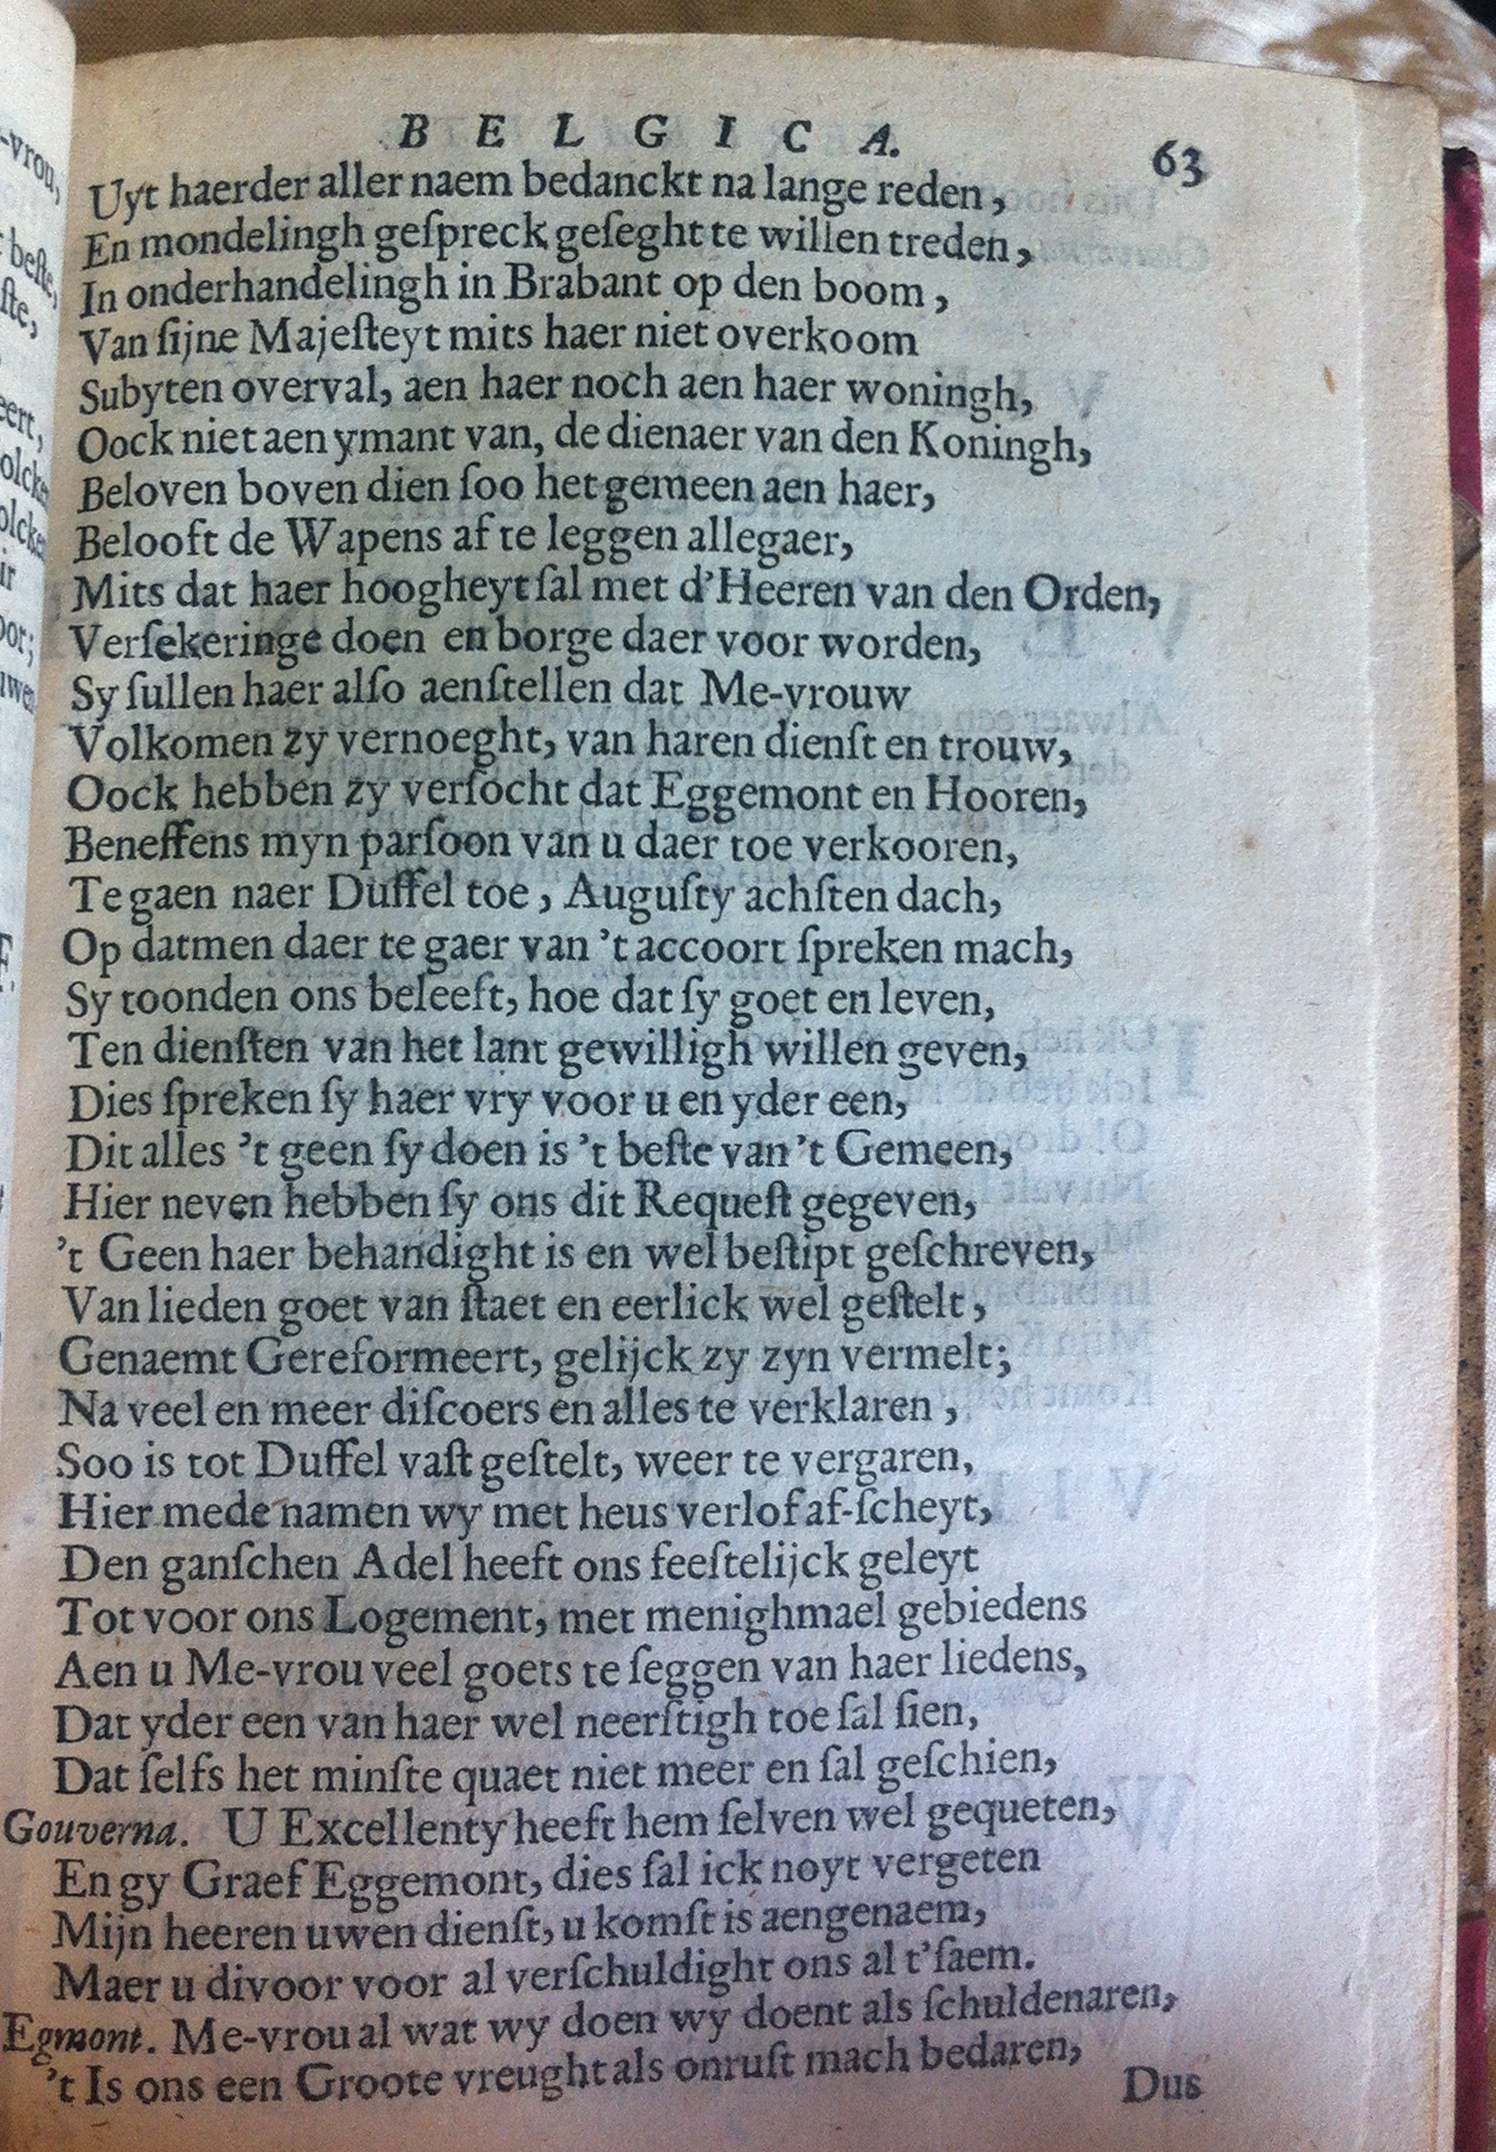 B E L G I C A. 63
Uyt haerder aller naem bedanckt na lange reden,
En mondelingh geſpreck geſeght te willen treden,
In onderhandelingh in Brabant op den boom,
Van ſijne Majeſteyt mits haer niet overkoom
Subyten overval, aen haer noch aen haer woningh,
Oock niet aen ymant van, de dienaer van den Koningh,
Beloven boven dien ſoo het gemeen aen haer,
Belooft de Wapens af te leggen allegaer,
Mits dat haer hoogheyt ſal met d'Heeren van den Orden,
Verſekeringe doen en borge daer voor worden,
Sy ſullen haer alſo aenſtellen dat Me-vrouw
Volkomen zy vernoeght, van haren dienſt en trouw,
Oock hebben zy verſocht dat Eggemont en Hooren,
Beneffens myn parſoon van u daer toe verkooren,
Te gaen naer Duffel toe, Auguſty achſten dach,
Op datmen daer te gaer van 't accoort ſpreken mach,
Sy toonden ons beleeft, hoe dat ſy goet en leven,
Ten dienſten van het lant gewilligh willen geven,
Dies ſpreken ſy haer vry voor u en yder een,
Dit alles 't geen ſy doen is 't beſte van 't Gemeen,
Hier neven hebben ſy ons dit Requeſt gegeven,
't Geen haer behandight is en wel beſtipt geſchreven,
Van lieden goet van ſtaet en eerlick wel geſtelt,
Genaemt Gereformeert, gelijck zy zyn vermelt;
Na veel en meer diſcoers en alles te verklaren,
Soo is tot Duffel vaſt geſtelt, weer te vergaren,
Hier mede namen wy met heus verlof af-ſcheyt,
Den ganſchen Adel heeft ons feeſtelijck geleyt
Tot voor ons Logement, met menighmael gebiedens
Aen u Me-vrou veel goets te ſeggen van haer liedens,
Dat yder een van haer wel neerſtigh toe ſal ſien,
Dat ſelfs het minſte quaet niet meer en ſal geſchien,
Gouverna. U Excellenty heeft hem ſelven wel gequeten,
En gy Graef Eggemont, dies ſal ick noyt vergeten
Mijn heeren uwen dienſt, u komſt is aengenaem,
Maer u divoor voor al verſchuldight ons al t'ſaem.
Egmont. Me-vrou al wat wy doen wy doent als ſchuldenaren,
't Is ons een Groote vreught als onruſt mach bedaren,
Dus